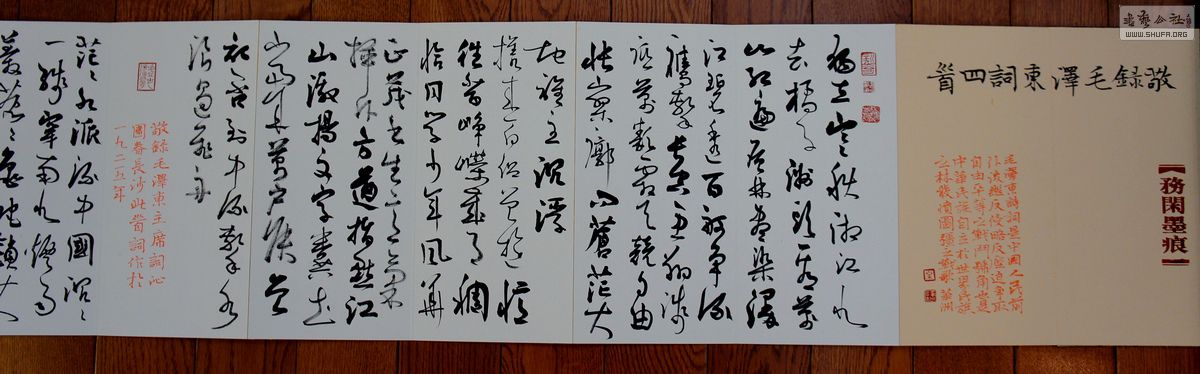 書藝公社
WWW.SHUFA.ORG
【務閑墨痕】
敬録毛澤東詞四首
毛澤東詩詞是中國人民前
仆後繼反侵略反壓迫爭取
自由平等之戰鬥號角也是
中華民族自立於世界民族
之林發憤圖强之
獨立寒秋湘江北
去橘子洲頭看萬
山紅遍層林盡染漫
江碧透百舸爭流
鷹擊長空魚翔淺
底萬類霜天競自由
悵寥廓問蒼茫大
地誰主沉浮
攜來百侶曾遊憶
往昔崢嶸歲月稠
恰同學少年風華
正茂書生意氣
揮斥方遒指點江
山激揚文字糞土
當年萬戶侯曾
記否到中流擊水
浪遏飛舟
敬錄毛澤東主席詞沁
園春長沙此首詞作於
一九二五年
茫茫九派流中國沉沉
一綫穿南北煙雨
莽蒼蒼龜蛇鎖大